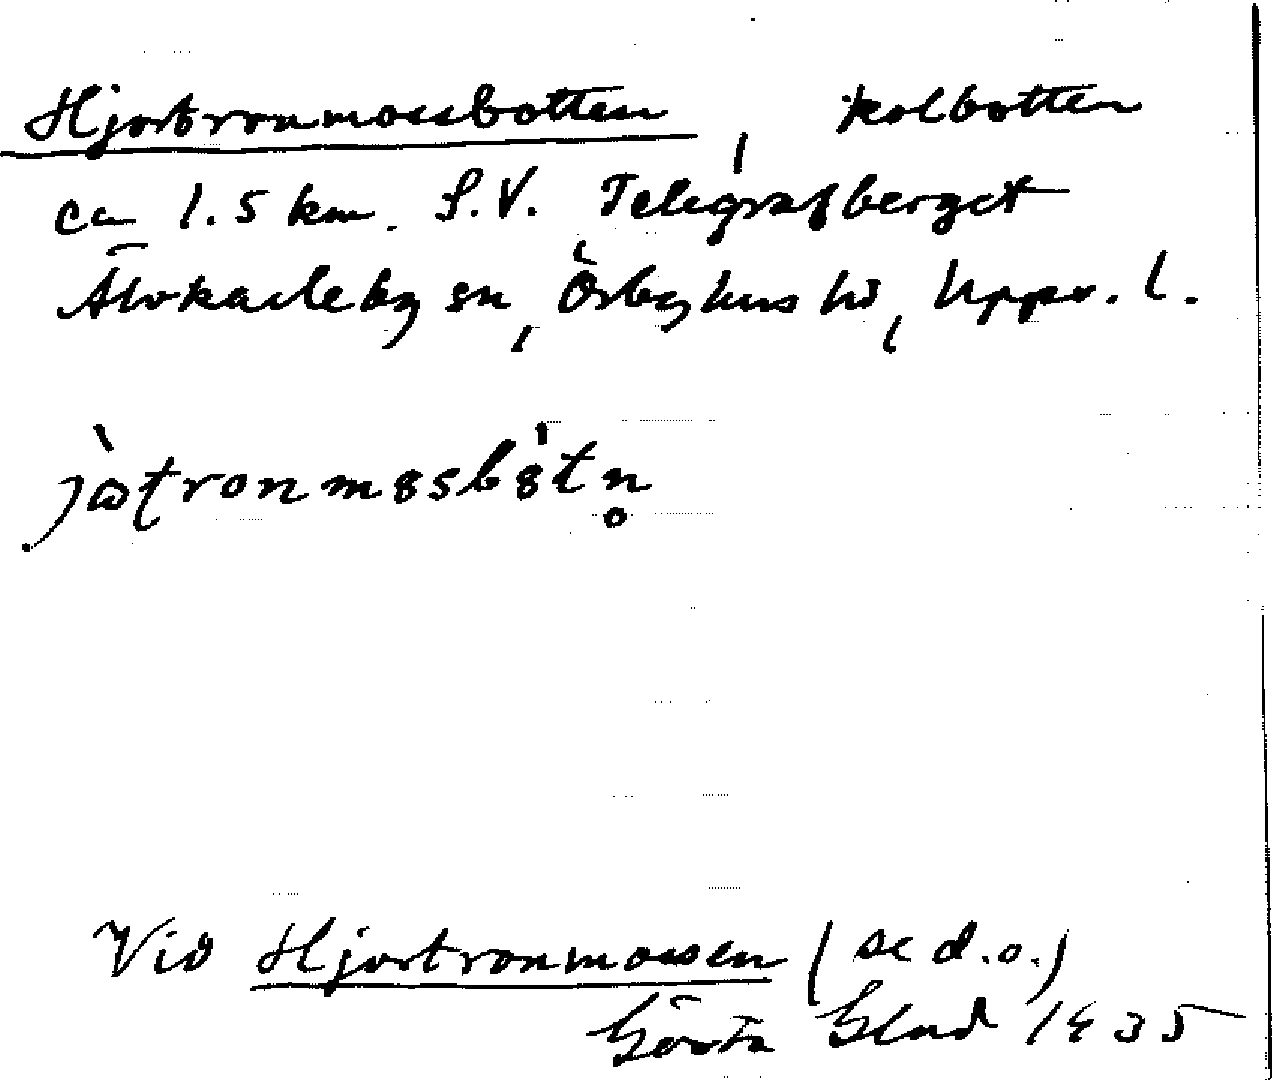 Hjortronmossbotten, kolbotten
ca 1.5 km. S.V. Telegrafberget
Älvkarleby sn, Örbyhus hd, Upps. l.
jò̀tronmɵsbɵ̍tn̥
Vid Hjortronmossen (se d.o.)
Gösta Glad 1935